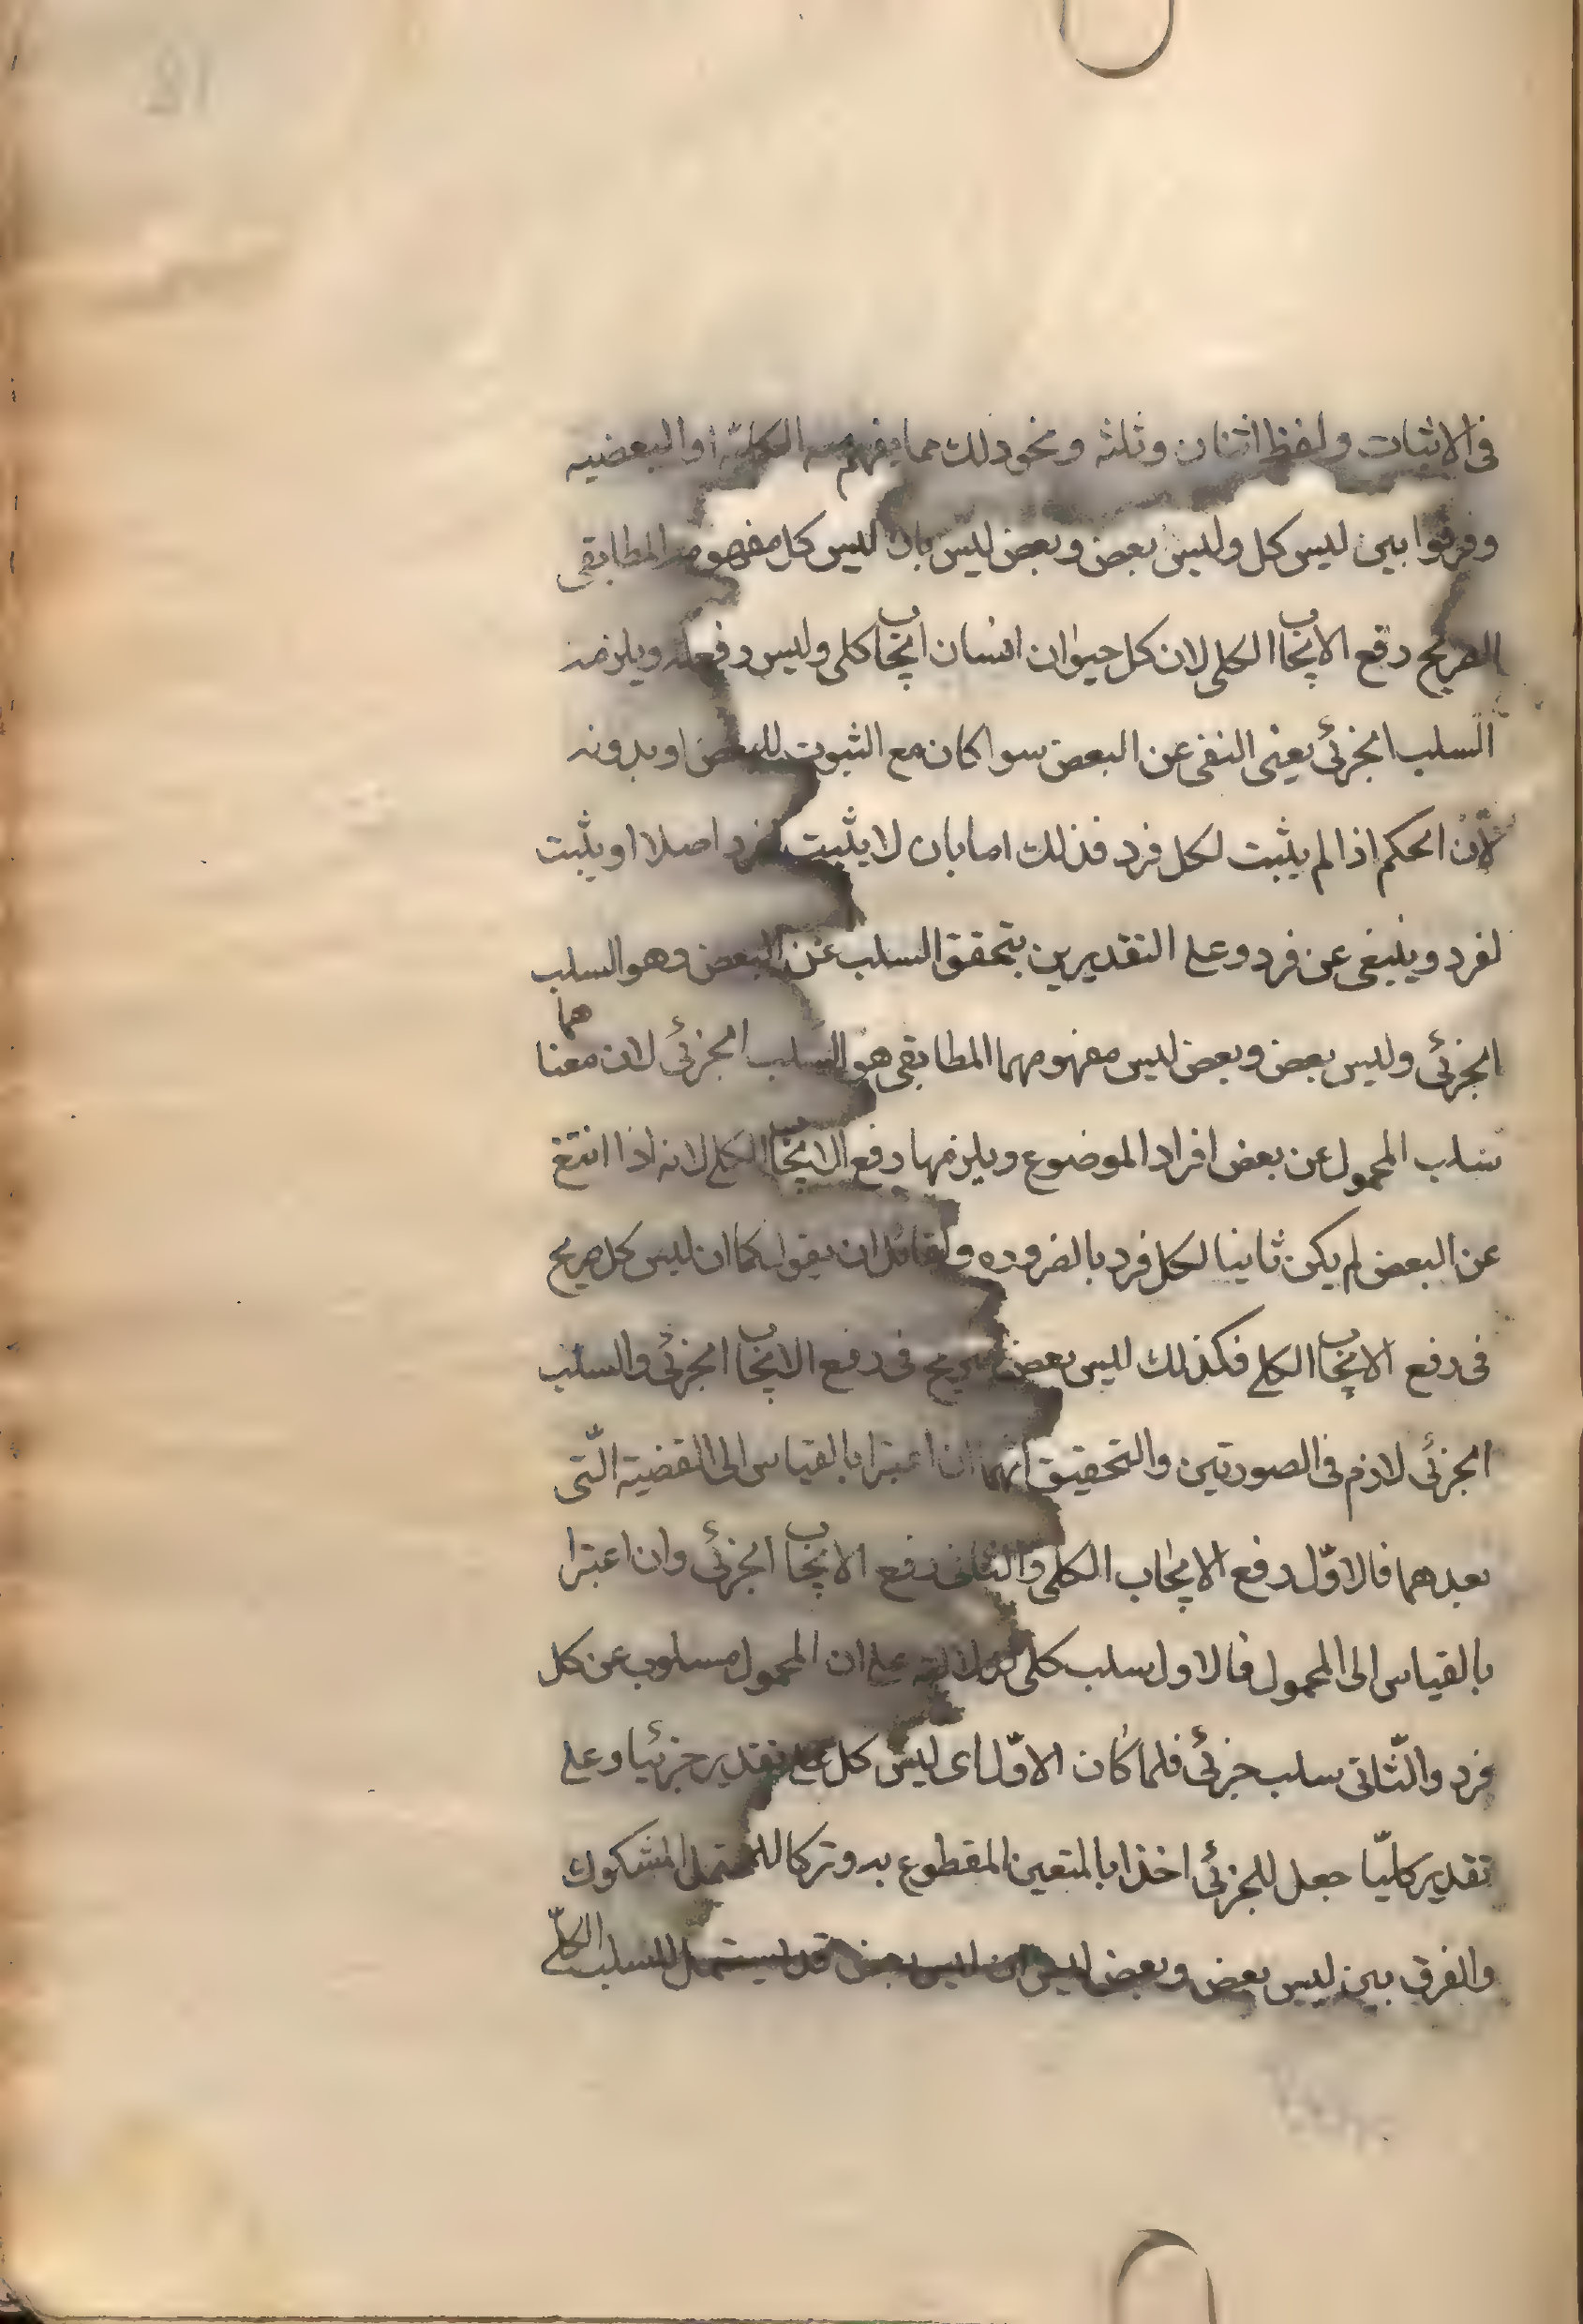 فى الاثبات ولفظ اثنان وثلثه ونحو ذلك مما يفهم منه الكليّة او البعضيه
وفرقوا بين ليس كل وليس بعض وبعض ليس بان ليس كل مفهومه المطابقى
الصريح رفع الايجاب الكلى لان كل حيوان انسان ايجاب كلى وليس رفعه ويلزمه
السلب الجزئى يعنى النفى عن البعض سوا كان مع الثبوت للبعض او بدونه
لانّ الحكم اذا لم يثبت لكل فرد فذلك اما بان لا يثبت لفرد اصلا او يثبت
لفرد وينبغى عن فرد وعلى التقديرين يتحقق السلب عن البعض وهو السلب
الجزئى وليس بعض وبعض ليس مفهومهما المطابقى هو السلب الجزئى لان معناهما
سلب المحمول عن بعض افراد الموضوع ويلزمها رفع الايجاب الكلى لانه اذا انتفى
عن البعض لم يكن ثابتا لكل فرد بالضروره ولقائل ان يقول كما ان ليس كل صريح
فى رفع الايجاب الكلى فكذلك ليس بعض صريح فى رفع الايجاب الجزئى والسلب
الجزئى لازم فى الصورتين والتحقيق انهما ان اعتبرا بالقياس الى القضية الّتى
بعدهما فالاوّل رفع الايجاب الكلى والثانى رفع الايجاب الجزئى وان اعتبرا
بالقياس الى المحمول فالاول سلب كلى لدلالته على ان المحمول مسلوب عن كل
فرد والثّانى سلب جزئى فلما كان الاوّل اى ليس كل على تقدير جزئيا وعلى
تقدير كليّا جعل للجزئى اخذا بالمتعين المقطوع به وتركا للمحتمل المشكوك
والفرق بين ليس بعض وبعض ليس ان ليس بعض قد يستعمل للسلب الكلّى